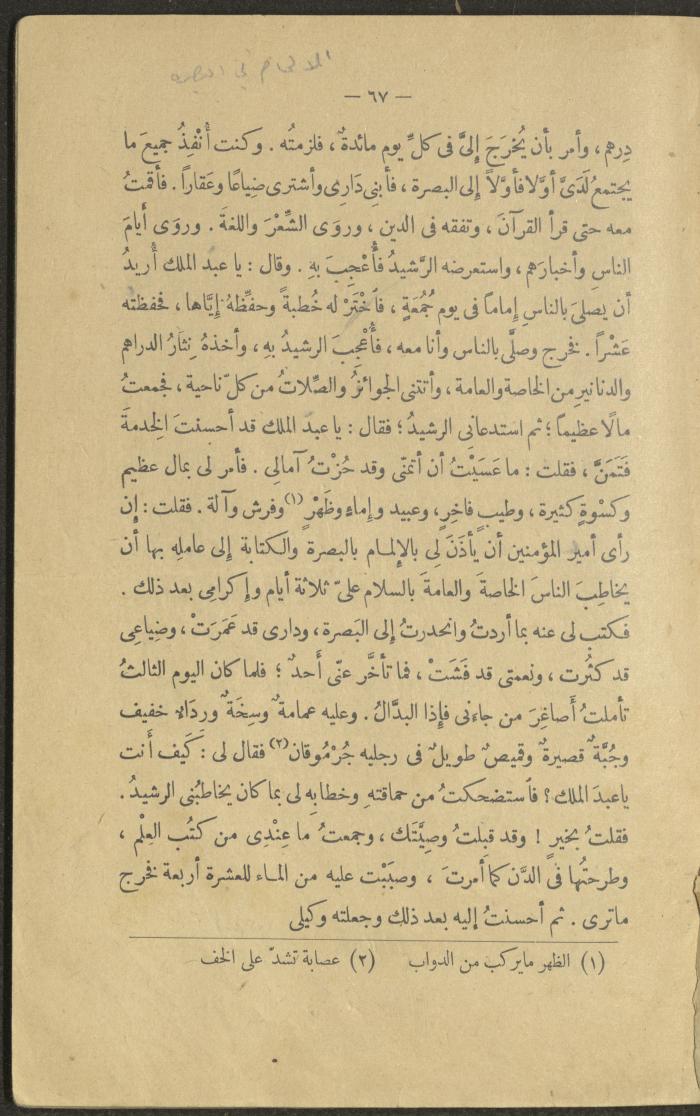 الالمام في البصرة
— ٦٧ —
دِرهم، وأمر بأن يُخرَجَ إلىَّ فى كلِّ يوم مائدةٌ، فلزمتُه. وكنت أُنْفِذُ جميعَ ما
يجتمعُ لَدَىَّ أوَّلا فأوَّلاً إلى البصرة، فأبنِى دَارِى وأشترى ضِياعًا وعَقارًا. فأقمتُ
معه حتى قرأ القرآنَ، وتفقه فى الدين، وروَى الشِّعْرَ واللغةَ. وروَى أيامَ
الناسِ وأخبارَهم، واستعرضه الرَّشيدُ فأُعْجِبَ بهِ. وقال: يا عبد الملك أُريدُ
أن يصلىَ بالناسِ إماماً فى يوم جُمُعَةٍ، فاُخْتَرْ له خُطبةً وحفِّظهُ إيَّاها، فحفظته
عَشْراً. فخرج وصلَّى بالناس وأنا معه، فأُعْجِبَ الرشيدُ بهِ، وأخذهُ نِثَارُ الدراهم
والدنانيرِ من الخاصة والعامة، وأتتنى الجوائزُ والصِّلاتُ من كلّ ناحية، فجمعتُ
مالًا عظيماً؛ ثم استدعانِى الرشيدُ؛ فقال: يا عبدَ الملك قد أحسنتَ الخِدمةَ
فَتَمَنَّ، فقلت: ما عَسَيْتُ أن أتمنّى وقد حُزْتُ آمالِى. فأمر لى بمال عظيم
وكسْوةٍ كثيرة، وطيبٍ فاخِرٍ، وعبيد وإماءٍ وظَهْرٍ (١) وفرش وآلة. فقلت: إن
رأى أمير المؤمنين أن يأذَنَ لِى بالإلمام بالبصرة والكتابة إلى عامله بها أن
يخاطِبَ الناسَ الخاصةَ والعامةَ بالسلام علىّ ثلاثة أيام وإكرامِى بعد ذلك.
فكتب لى عنه بما أردتُ وانحدرتُ إلى البَصرة، ودارى قد عَمَرَتْ، وضِياعِى
قد كثُرت، ونعمتى قد فَشَتْ، فما تأخَّر عنّى أحدٌ؛ فلما كان اليوم الثالثُ
تأملتُ أصاغِرَ من جاءنى فإذا البدَّالُ. وعليه عمامةٌ وسِخَةٌ وردَاء خفيف
وجُبَّةٌ قصيرةٌ وقميصٌ طويلٌ فى رجليه جُرْمُوقان (٢) فقال لى: كَيف أَنت
ياعبدَ الملك؟ فاُستضحكتُ من حماقتهِ وخطابهِ لى بما كان يخاطبُنى الرشيدُ.
فقلتُ بخيرٍ! وقد قبِلتُ وصِيَّتَك، وجمعتُ ما عِنْدِى من كُتُب العِلْم،
وطرحتُها فى الدَّن كما أمرتَ، وصبَبْت عليه من الماء للعشرة أربعة فخرج
ماترى. ثم أحسنتُ إليه بعد ذلك وجعلته وكيلى
(١) الظهر مايركب من الدواب (٢) عصابة تشدّ على الخف